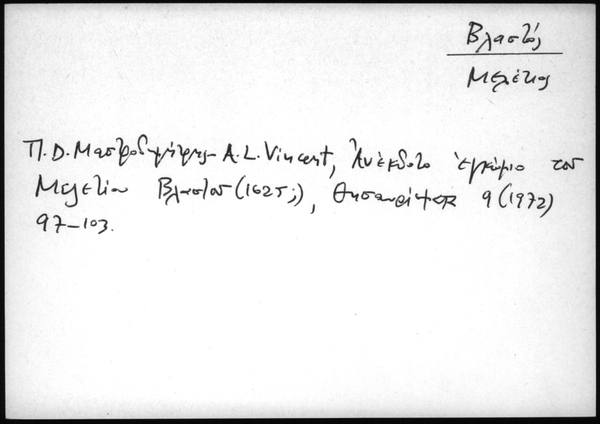 Βλαστός
Μελέτιος
Π.D. Μαστροδημήτρης - A.L. Vincent, Ἀνέκδοτο ἐγκώμιο τοῦ
Μελετίου Βλαστοῦ (1625;), Θησαυρίσματα 9 (1972)
97-103.